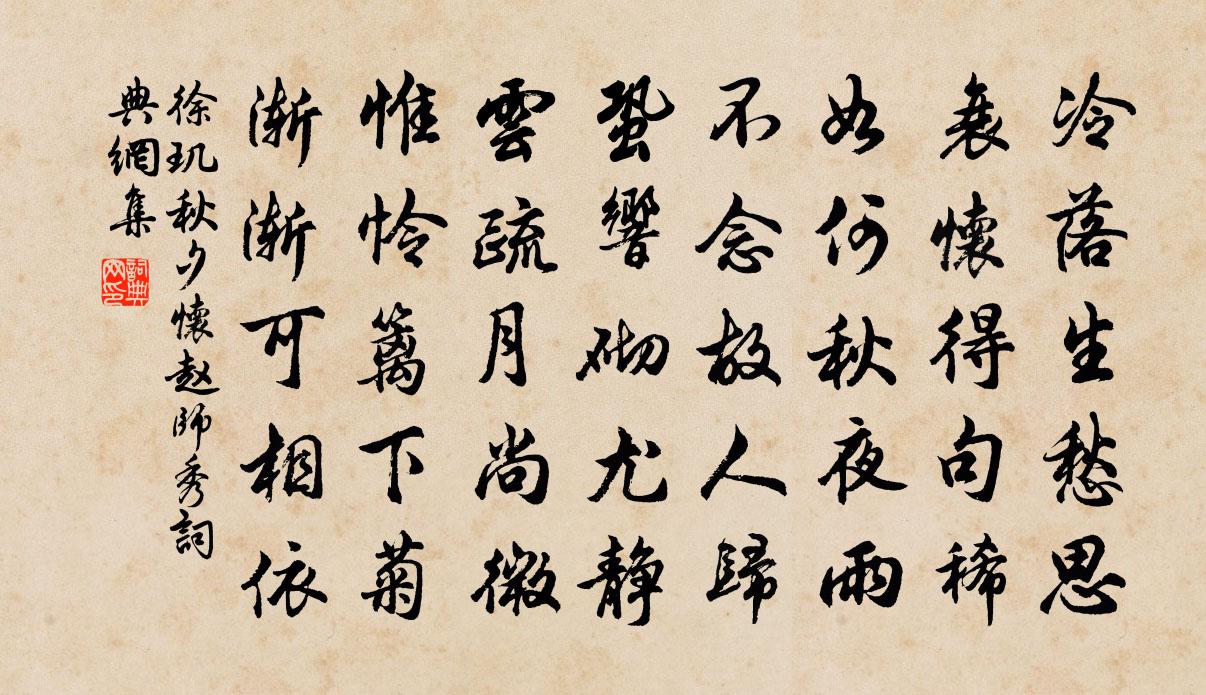 冷落生愁思
衰懷得句稀
如何秋夜雨
不念故人歸
蛩響砌尤静
雲疏月尚微
惟怜籬下菊
漸漸可相依
徐玑秋夕懷赵師秀詞
典網集
詞典
网印